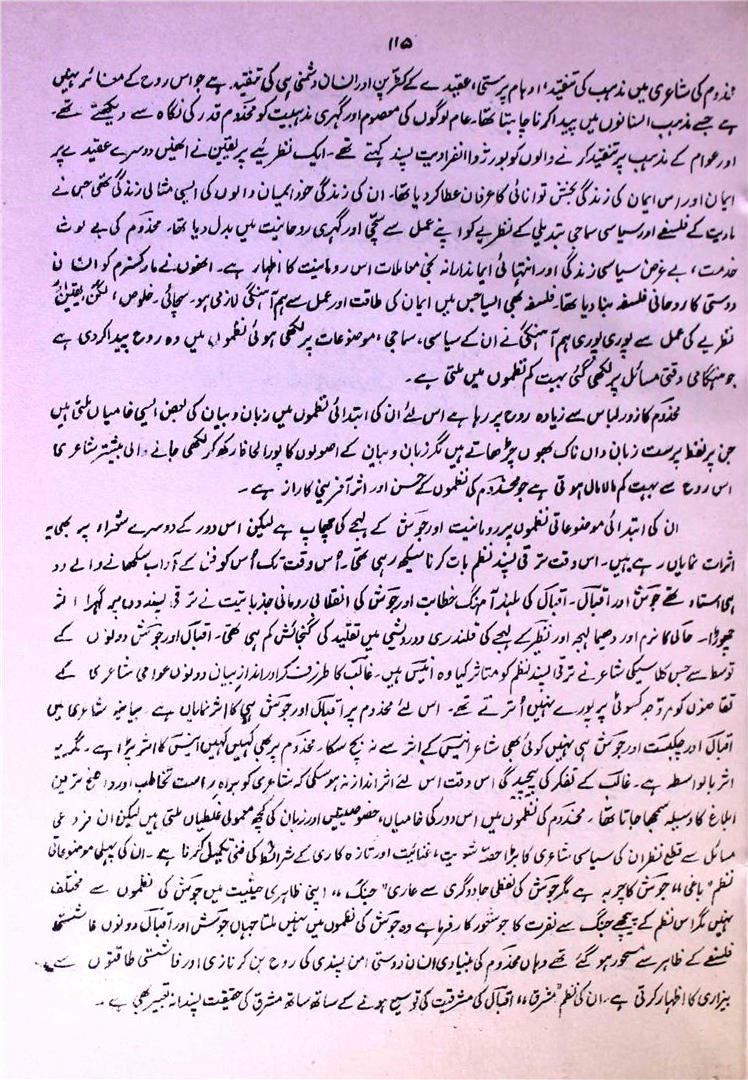 ۱۱۵
مخدوم کی شاعری میں مذہب کی تنقید، اوہام پرستی، عقیدے کے کٹرپن اور انسان دشمنی ہی کی تنقید ہے جو اس روح کے مغائر نہیں
ہے جسے مذہب انسانوں میں پیدا کرنا چاہتا تھا۔ عام لوگوں کی معصوم اور گہری مذہبیت کو مخدوم قدر کی نگاہ سے دیکھتے تھے۔
اور عوام کے مذہب پر تنقید کرنے والوں کو بورژوا انفرادیت پسند کہتے تھے۔ ایک نظریئے پر یقین نے انھیں دوسرے عقیدے پر
ایمان اور اس ایمان کی زندگی بخش توانائی کا عرفان عطا کر دیا تھا۔ ان کی زندگی خود ایمان والوں کی ایسی مثالی زندگی تھی جس نے
مادیت کے فلسفے اور سیاسی سماجی تبدیلی کے نظریے کو اپنے عمل سے سچی اور گہری روحانیت میں بدل دیا تھا۔ مخدوم کی بے لوث
خدمت، بے غرض سیاسی زندگی اور انتہائی ایماندارانہ نجی معاملات اس روحانیت کا اظہار ہے۔ انھوں نے مارکسزم کو انسان
دوستی کا روحانی فلسفہ بنا دیا تھا۔ فلسفہ بھی ایسا جس میں ایمان کی طاقت اور عمل سے ہم آہنگی لازمی ہو۔ سچائی، خلوص، لگن، یقین اور
نظریے کی عمل سے پوری پوری ہم آہنگی نے ان کے سیاسی، سماجی، موضوعات پر لکھی ہوئی نظموں میں وہ روح پیدا کر دی ہے
جو ہنگامی وقتی مسائل پر لکھی گئی بہت کم نظموں میں ملتی ہے۔
مخدوم کا زور لباس سے زیادہ روح پر رہا ہے اس لئے ان کی ابتدائی نظموں میں زبان و بیان کی بعض ایسی خامیاں ملتی ہیں
جن پر لفظ پرست زبان داں ناک بھوں چڑھاتے ہیں مگر زبان و بیان کے اصولوں کا پورا لحاظ رکھ کر لکھی جانے والی بیشتر شاعری
اس روح سے بہت کم مالا مال ہوتی ہے جو مخدوم کی نظموں کے حسن اور اثر آفرینی کا راز ہے۔
ان کی ابتدائی موضوعاتی نظموں پر رومانیت اور جوش کے لہجے کی چھاپ ہے لیکن اس دور کے دوسرے شعراء پر بھی یہ
اثرات نمایاں رہے ہیں۔ اس وقت ترقی پسند نظم بات کرنا سیکھ رہی تھی۔ اُس وقت تک اُس کو فن کے آداب سکھانے والے دو
ہی استاد تھے جوش اور اقبال۔ اقبال کی بلند آہنگ خطابت اور جوش کی انقلابی رومانی جذباتیت نے ترقی پسندوں پر گہرا اثر
چھوڑا۔ حالی کا نرم اور دھیما لہجہ اور نظیر کے لہجے کی قلندری و درویشی میں تقلید کی گنجائش کم ہی تھی۔ اقبال اور جوش دونوں کے
توسط سے جس کلاسیکی شاعر نے ترقی پسند نظم کو متاثر کیا وہ انیس ہیں۔ غالب کا طرز فکر اور انداز بیان دونوں عوامی شاعری کے
تقاضوں کو مروجہ کسوٹی پر پورے نہیں اُترتے تھے۔ اس لئے مخدوم پر اقبال اور جوش ہی کا اثر نمایاں ہے بیانیہ شاعری میں
اقبال اور چکبست اور جوش ہی نہیں کوئی بھی شاعر انیس کے اثر سے نہ بچ سکا۔ مخدوم پر بھی کہیں کہیں انیس کا اثر پڑا ہے۔ مگر یہ
اثر بالواسطہ ہے۔ غالب کے تفکر کی پیچیدگی اس وقت اس لئے اثر انداز نہ ہو سکی کہ شاعری کو براہ راست تخاطب اور واضح ترین
ابلاغ کا وسیلہ سمجھا جاتا تھا۔ مخدوم کی نظموں میں اس دور کی خامیاں، خصوصیتیں اور زبان کی کچھ معمولی غلطیاں ملتی ہیں لیکن ان فروعی
مسائل سے قطع نظر ان کی سیاسی شاعری کا بڑا حصہ شعریت، غنائیت اور تازہ کاری کے شرائط کی فنی تکمیل کرتا ہے۔ ان کی پہلی موضوعاتی
نظم "باغی" جوش کا چربہ ہے مگر جوش کی لفظی جادوگری سے عاری "جنگ" اپنی ظاہری حیثیت میں جوش کی نظموں سے مختلف
نہیں مگر اس نظم کے پیچھے جنگ سے نفرت کا جو شعور کارفرما ہے وہ جوش کی نظموں میں نہیں ملتا جہاں جوش اور اقبال دونوں فاشسٹ
فلسفے کے ظاہر سے مسحور ہو گئے تھے وہاں مخدوم کی بنیادی انسان دوستی امن پسندی کی روح بن کر نازی اور فاشستی طاقتوں سے
بیزاری کا اظہار کرتی ہے۔ ان کی نظم "مشرق" اقبال کی مشرقیت کی توسیع ہونے کے ساتھ ساتھ مشرق کی حقیقت پسندانہ تعبیر بھی ہے۔